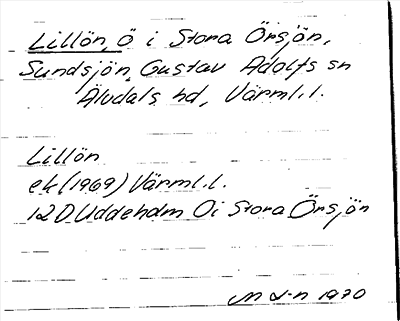 Lillön, ö i Stora Örsjön,
Sundsjön, Gustav Adolfs sn
Älvdals hd, Värml.l.
Lillön
ek (1969) Värml.l.
12 D Uddeholm Ö i Stora Örsjön
1970